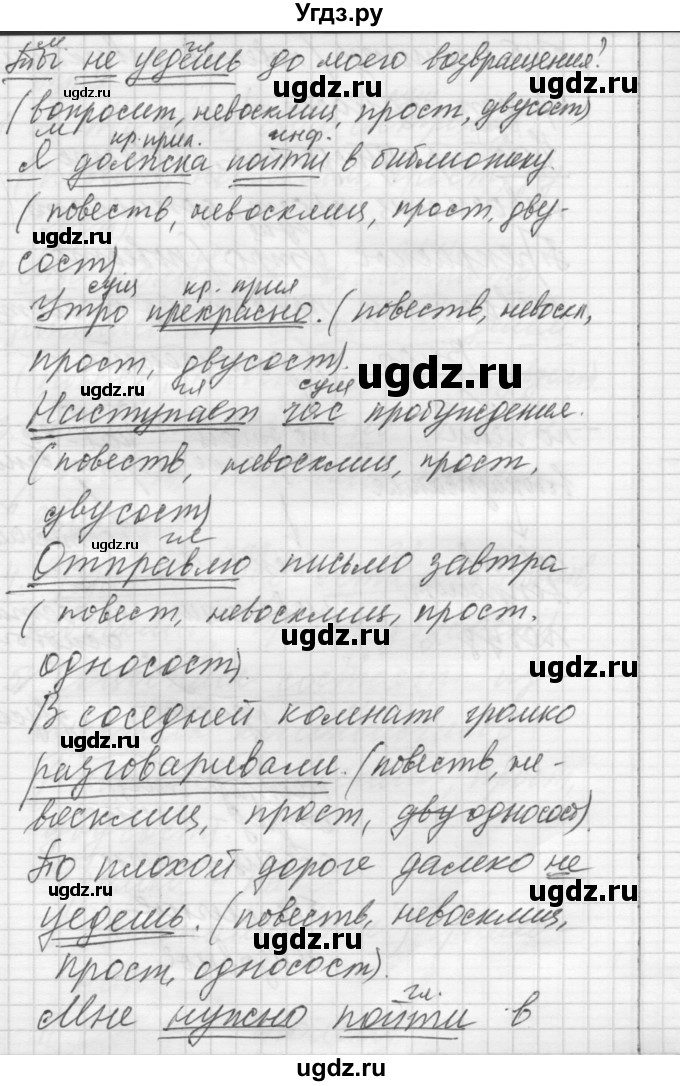 Угдз.ру
м гл
Ты не уедешь до моего возвращения?
ugdz.ru ugdz.ru
(вопросит, невосклиц, прост, двусост)
м кр. прил. инф.
Я должна пойти в библиотеку.
ugdz.ru
(повеств, невосклиц, прост, дву-
ugdz.ru
сост)
сущ кр. прил
Утро прекрасно. (повеств, невоскл,
ugdz.ru
прост, двусост).
ugdz.ru
гл сущ
ugdz.ru
Наступает час пробуждения.
(повеств, невосклиц, прост,
ugdz.ru
двусост)
ugdz.ru
гл
Отправлю письмо завтра
(повест, невосклиц, прост.
ugdz.ru
односост).
ugdz.ru
В соседней комнате громко
ugdz.ru
разговаривали. (повеств, не-
ugdz.ru
восклиц, прост, дву односост).
По плохой дороге далеко не
ugdz.ru
уедешь. (повеств, невосклиц,
ugdz.ru
прост, односост).
ugdz.ru
гл.
Мне нужно пойти в
ugdz.ru
ugdz.ru